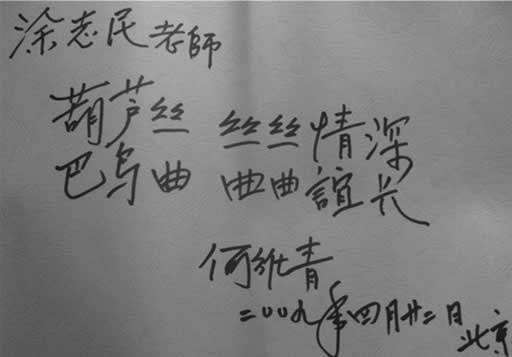 涂志民老師
葫芦丝 丝丝情深
巴乌曲 曲曲誼长
何维青
二00九年四月廿二日
北京